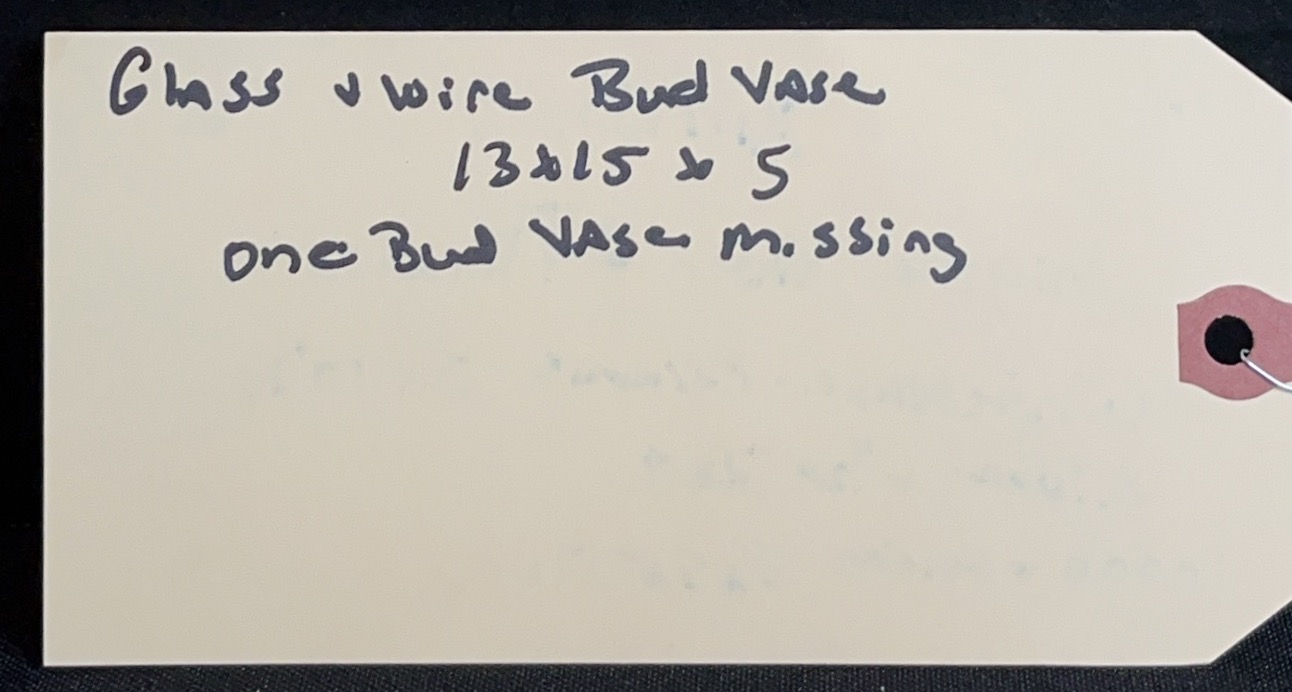 Glass & wire Bud VAse
13x15 x 5
one Bud VAse missing